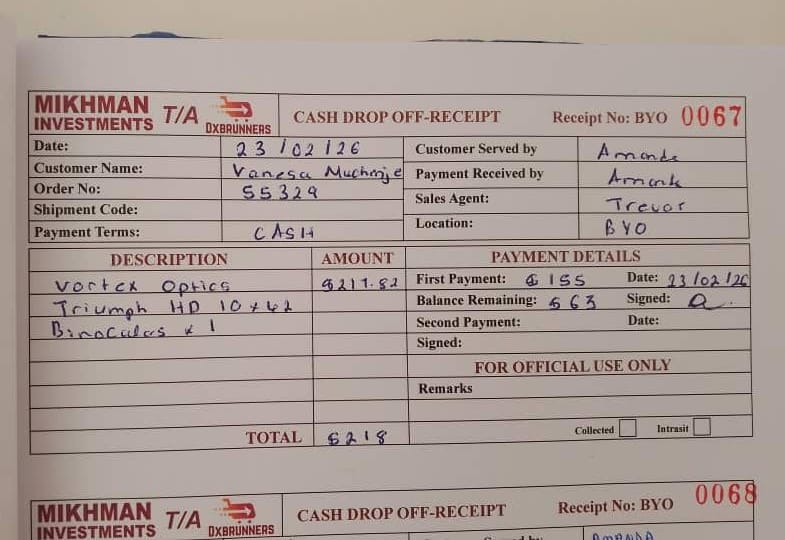 MIKHMAN INVESTMENTS T/A OXBRUNNERS CASH DROP OFF-RECEIPT Receipt No: BYO 0067
Date: 23/02/26
Customer Served by Amanda
Customer Name: Vanesa Muchinje
Payment Received by Amanda
Order No: 55329
Sales Agent: Trevor
Shipment Code:
Location: BYO
Payment Terms: CASH
DESCRIPTION AMOUNT PAYMENT DETAILS
Vortex Optics $217.82
First Payment: $155 Date: 23/02/26
Triumph HD 10x42
Balance Remaining: $63 Signed: a.
Binoculars x 1
Second Payment: Date:
Signed:
FOR OFFICIAL USE ONLY
Remarks
TOTAL $218
Collected Intrasit
MIKHMAN INVESTMENTS T/A OXBRUNNERS CASH DROP OFF-RECEIPT Receipt No: BYO 0068
AMANDA